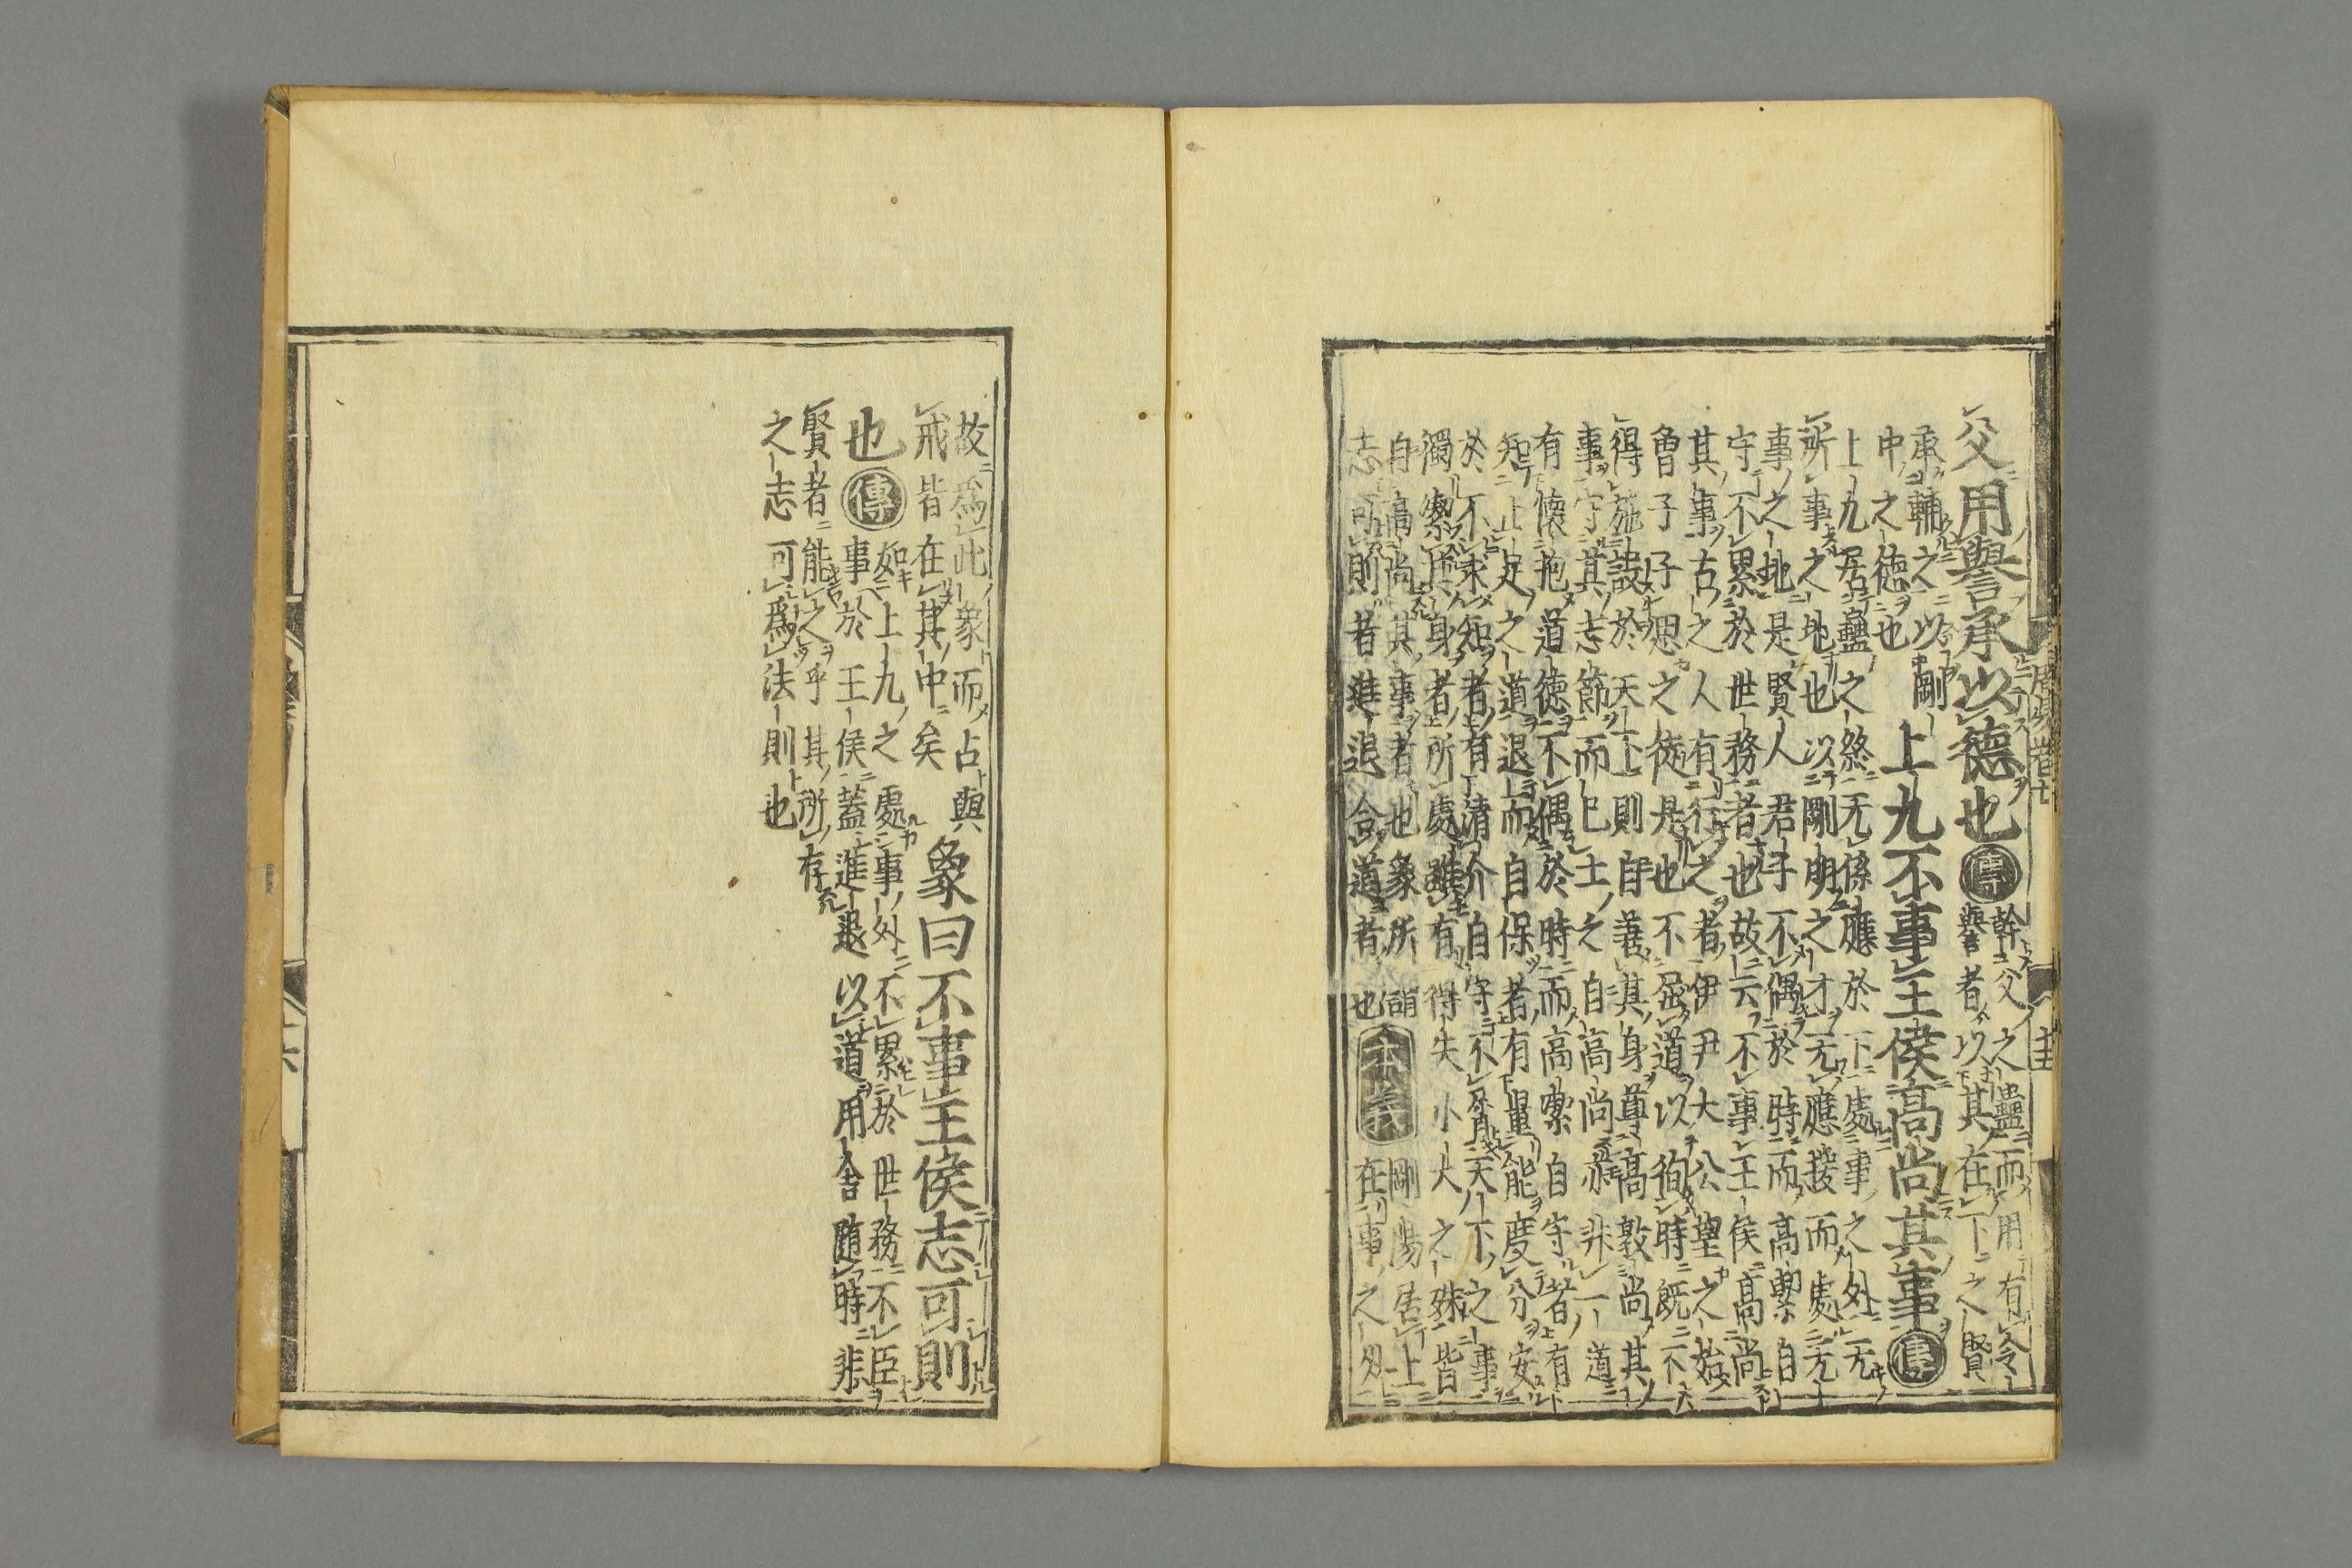 父用譽承以德也傳幹父之蠱而用有令
譽者以其在下之賢
承輔之以剛
中之德也
上九不事王侯高尚其事傳
上九居蠱之終无係應於下處事之外无
所事之地也以剛明之才无應援而處无
事之地是賢人君子不偶於時而高潔自
守不累於世務者也故云不事王侯高尚
其事古之人有行之者伊尹大公望之始
曾子子思之徒是也不屈道以徇時既不
得施設於天下則自善其身尊高敦尚其
事守其志節而已士之自高尚亦非一道
有懷抱道德不偶於時而高潔自守者有
知止足之道退而自保者有量能度分安
於不求知者有清介自守不屑天下之事
獨潔其身者所處雖有得失小大之殊皆
自高尚其事者也象所謂
志可則者進退合道者也本義剛陽居上
在事之外
故爲此象而占與
戒皆在其中矣
象曰不事王侯志可則
也傳如上九之處事外不累於世務不臣
事於王侯蓋進退以道用舍隨時非
賢者能之乎其所存
之志可爲法則也